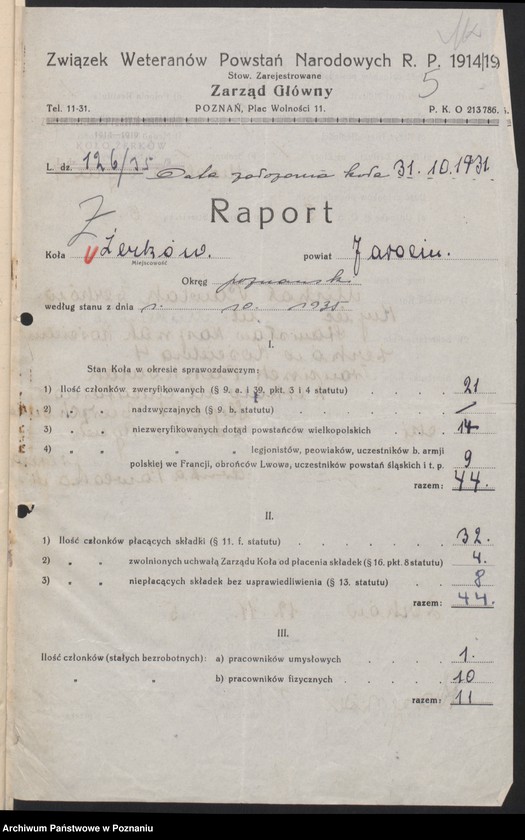 Związek Weteranów Powstań Narodowych R. P. 1914/19
Stow. Zarejestrowane
Zarząd Główny
Tel. 11-31. POZNAŃ, Plac Wolności 11. P. K. O 213786.
5
L. dz. 126/35 Data założenia koła 31.10.1931
Raport
Ż
Koła Żerków. powiat Jarocin.
Miejscowość
Okręg poznański
według stanu z dnia 1. 10. 1935
I.
Stan Koła w okresie sprawozdawczym:
1) Ilość członków zweryfikowanych (§ 9. a. i 39. pkt. 3 i 4 statutu) 21
2) „ „ nadzwyczajnych (§ 9. b. statutu) /
3) „ „ niezweryfikowanych dotąd powstańców wielkopolskich 14
4) „ „ „ legjonistów, peowiaków, uczestników b. armji
polskiej we Francji, obrońców Lwowa, uczestników powstań śląskich i t. p. 9
razem: 44.
II.
1) Ilość członków płacących składki (§ 11. f. statutu) 32.
2) „ „ zwolnionych uchwałą Zarządu Koła od płacenia składek (§ 16. pkt. 8 statutu) 4.
3) „ „ niepłacących składek bez usprawiedliwienia (§ 13. statutu) 8
razem: 44.
III.
Ilość członków (stałych bezrobotnych): a) pracowników umysłowych 1.
„ „ b) pracowników fizycznych 10
razem: 11
Archiwum Państwowe w Poznaniu